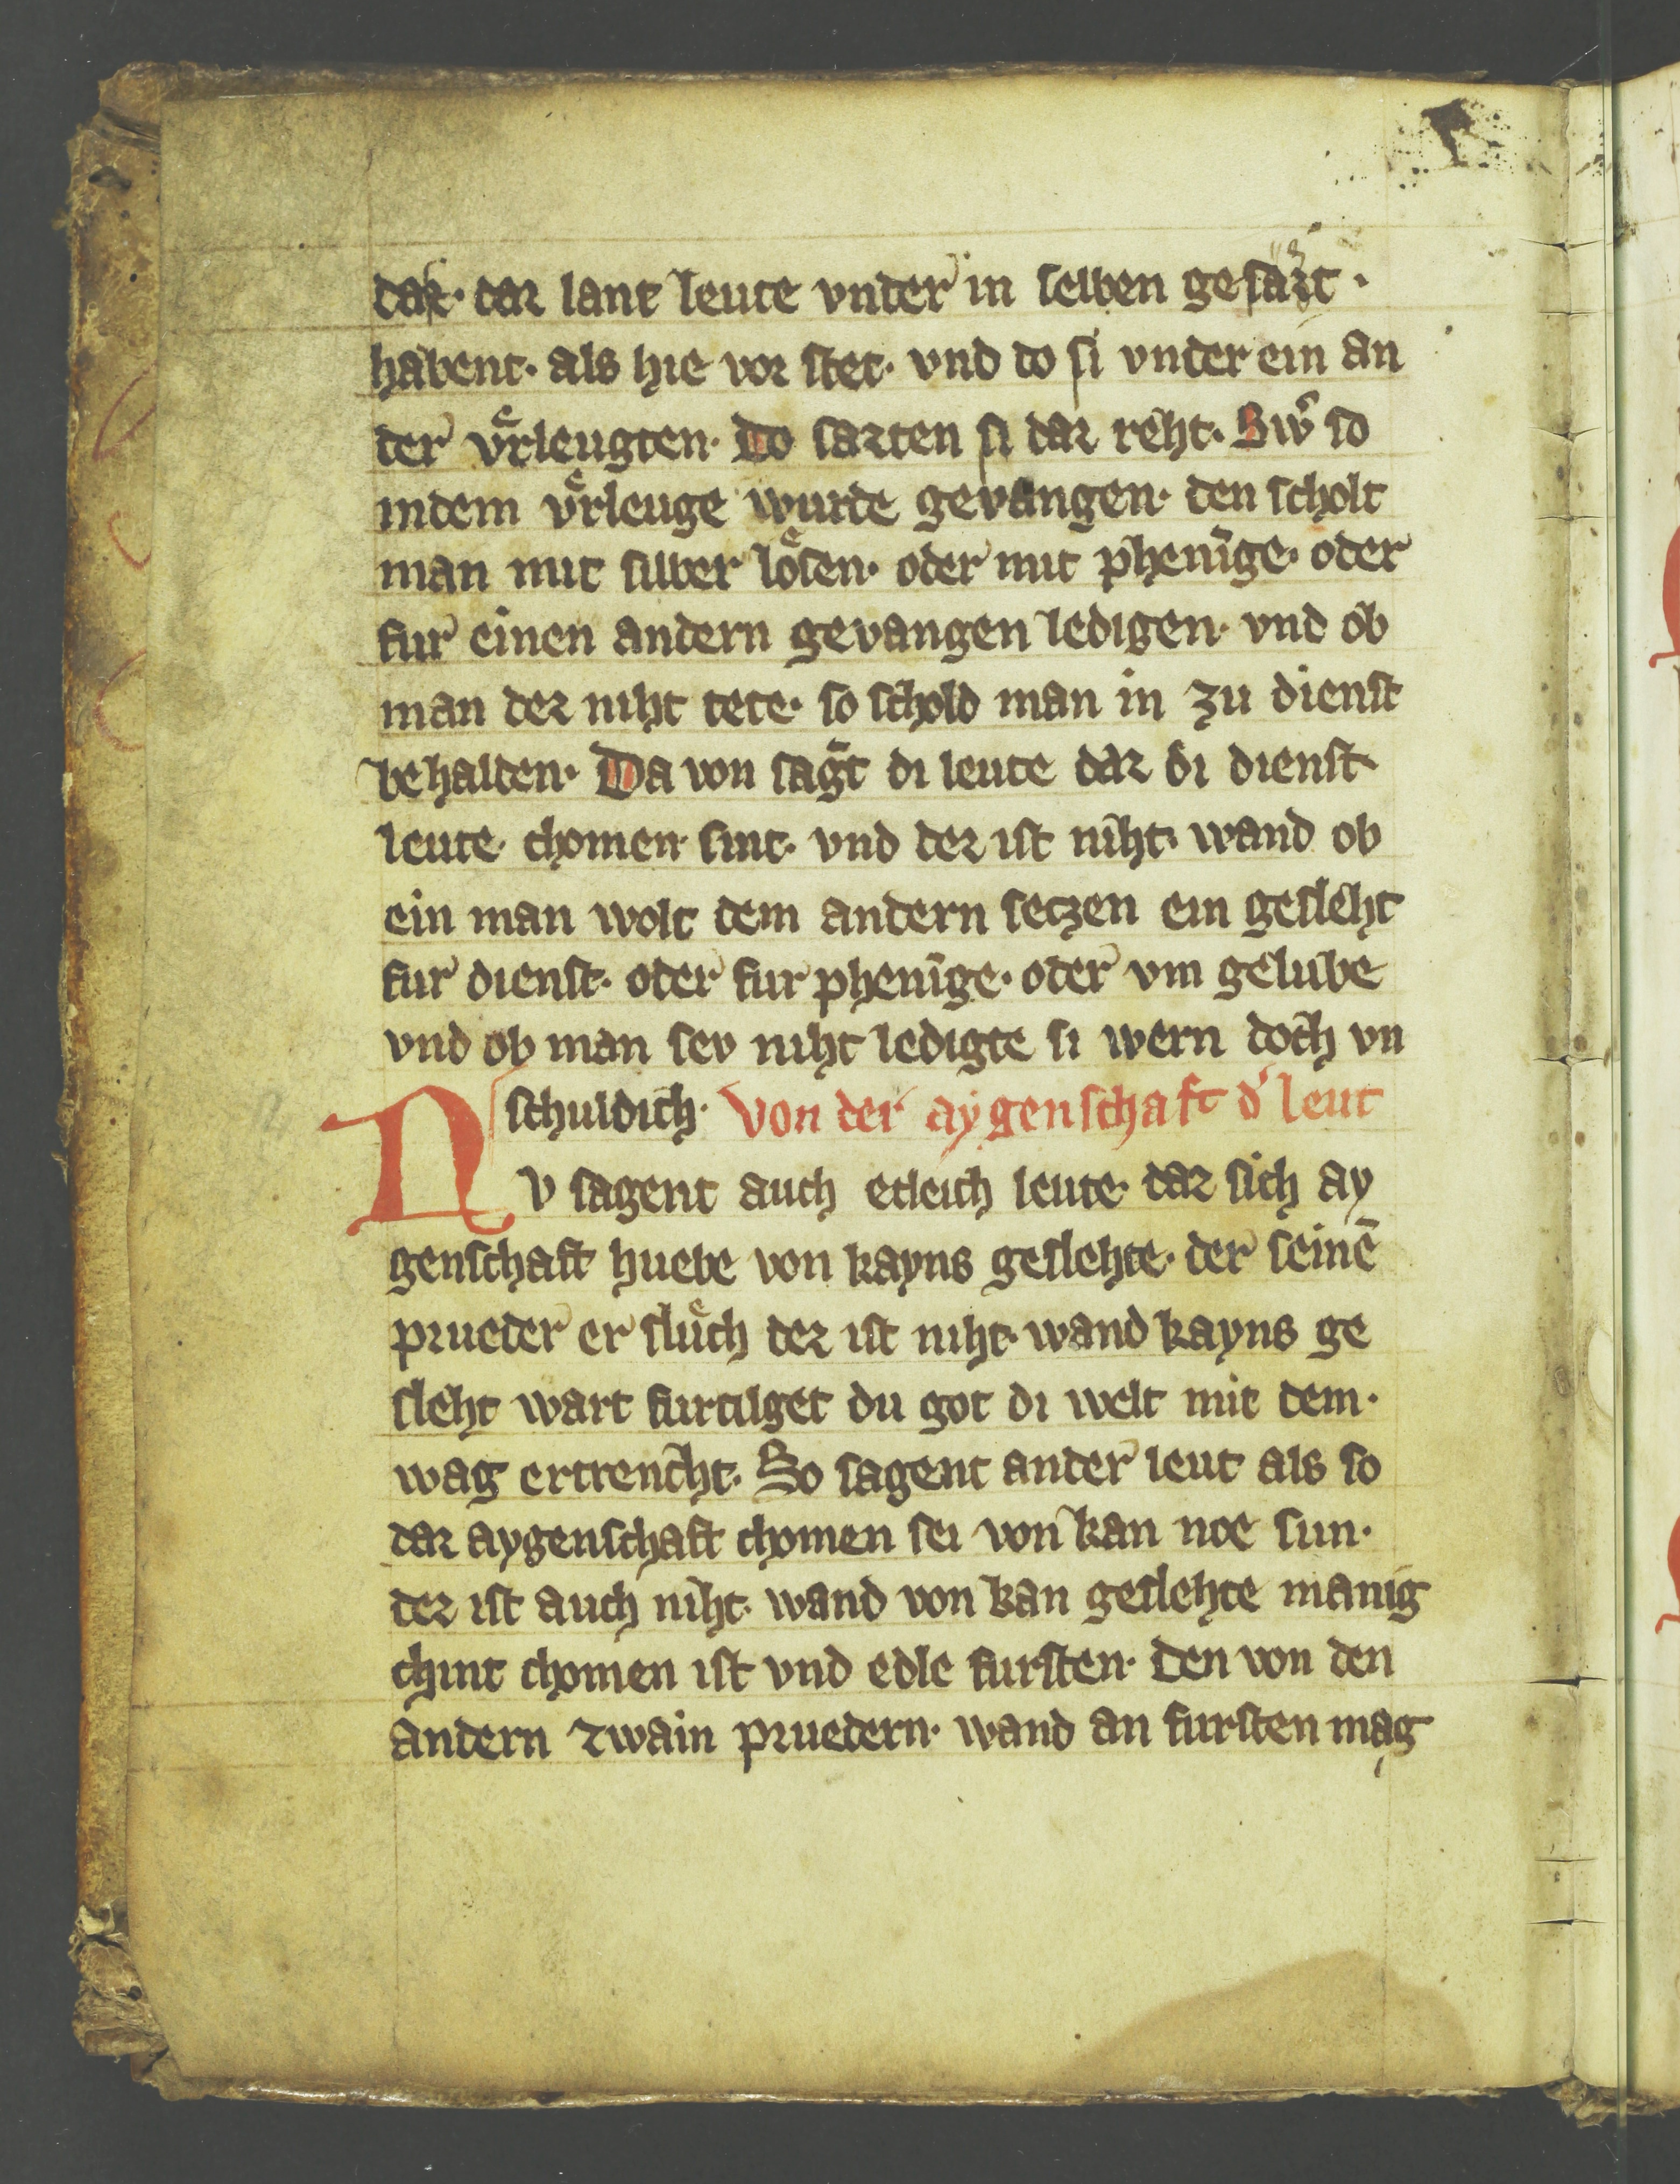 daz· daz lant leute vnder in selben gesazt·
habent· als hie vor stet· vnd do si vnder ein an
der vͤrleugten· Do sazten si daz reht· Sw̄ so
indem vͤrleuge wurde gevangen· den scholt
man mit silber loͤsen· oder mit phenīge· oder
fur einen andern gevangen ledigen· vnd ob
man dez niht tete· so schold man in zu dienst
behalden· Da von sagt̄ di leute daz di dienst
leute· chomen sint· vnd dez ist niht· wand ob
ein man wolt dem andern setzen ein gesleht
fur dienst· oder fur phenīge· oder vm gelube
vnd ob man sev niht ledigte si wern doch vn
schuldich· Von der aygenschaft d' leut
Nv sagent auch etleich leute· daz sich ay
genschaft huebe von kayns geslehte· der seinē
prueder er sluͤch dez ist niht· wand kayns ge
sleht wart furtilget du got di welt mit dem·
wag ertrencht· So sagent ander leut als so
daz aygenschaft chomen sei von kan noe sun·
dez ist auch niht· wand von kan geslehte manig
chint chomen ist vnd edle fursten· Den von den
andern zwain pruedern· wand an fursten mag